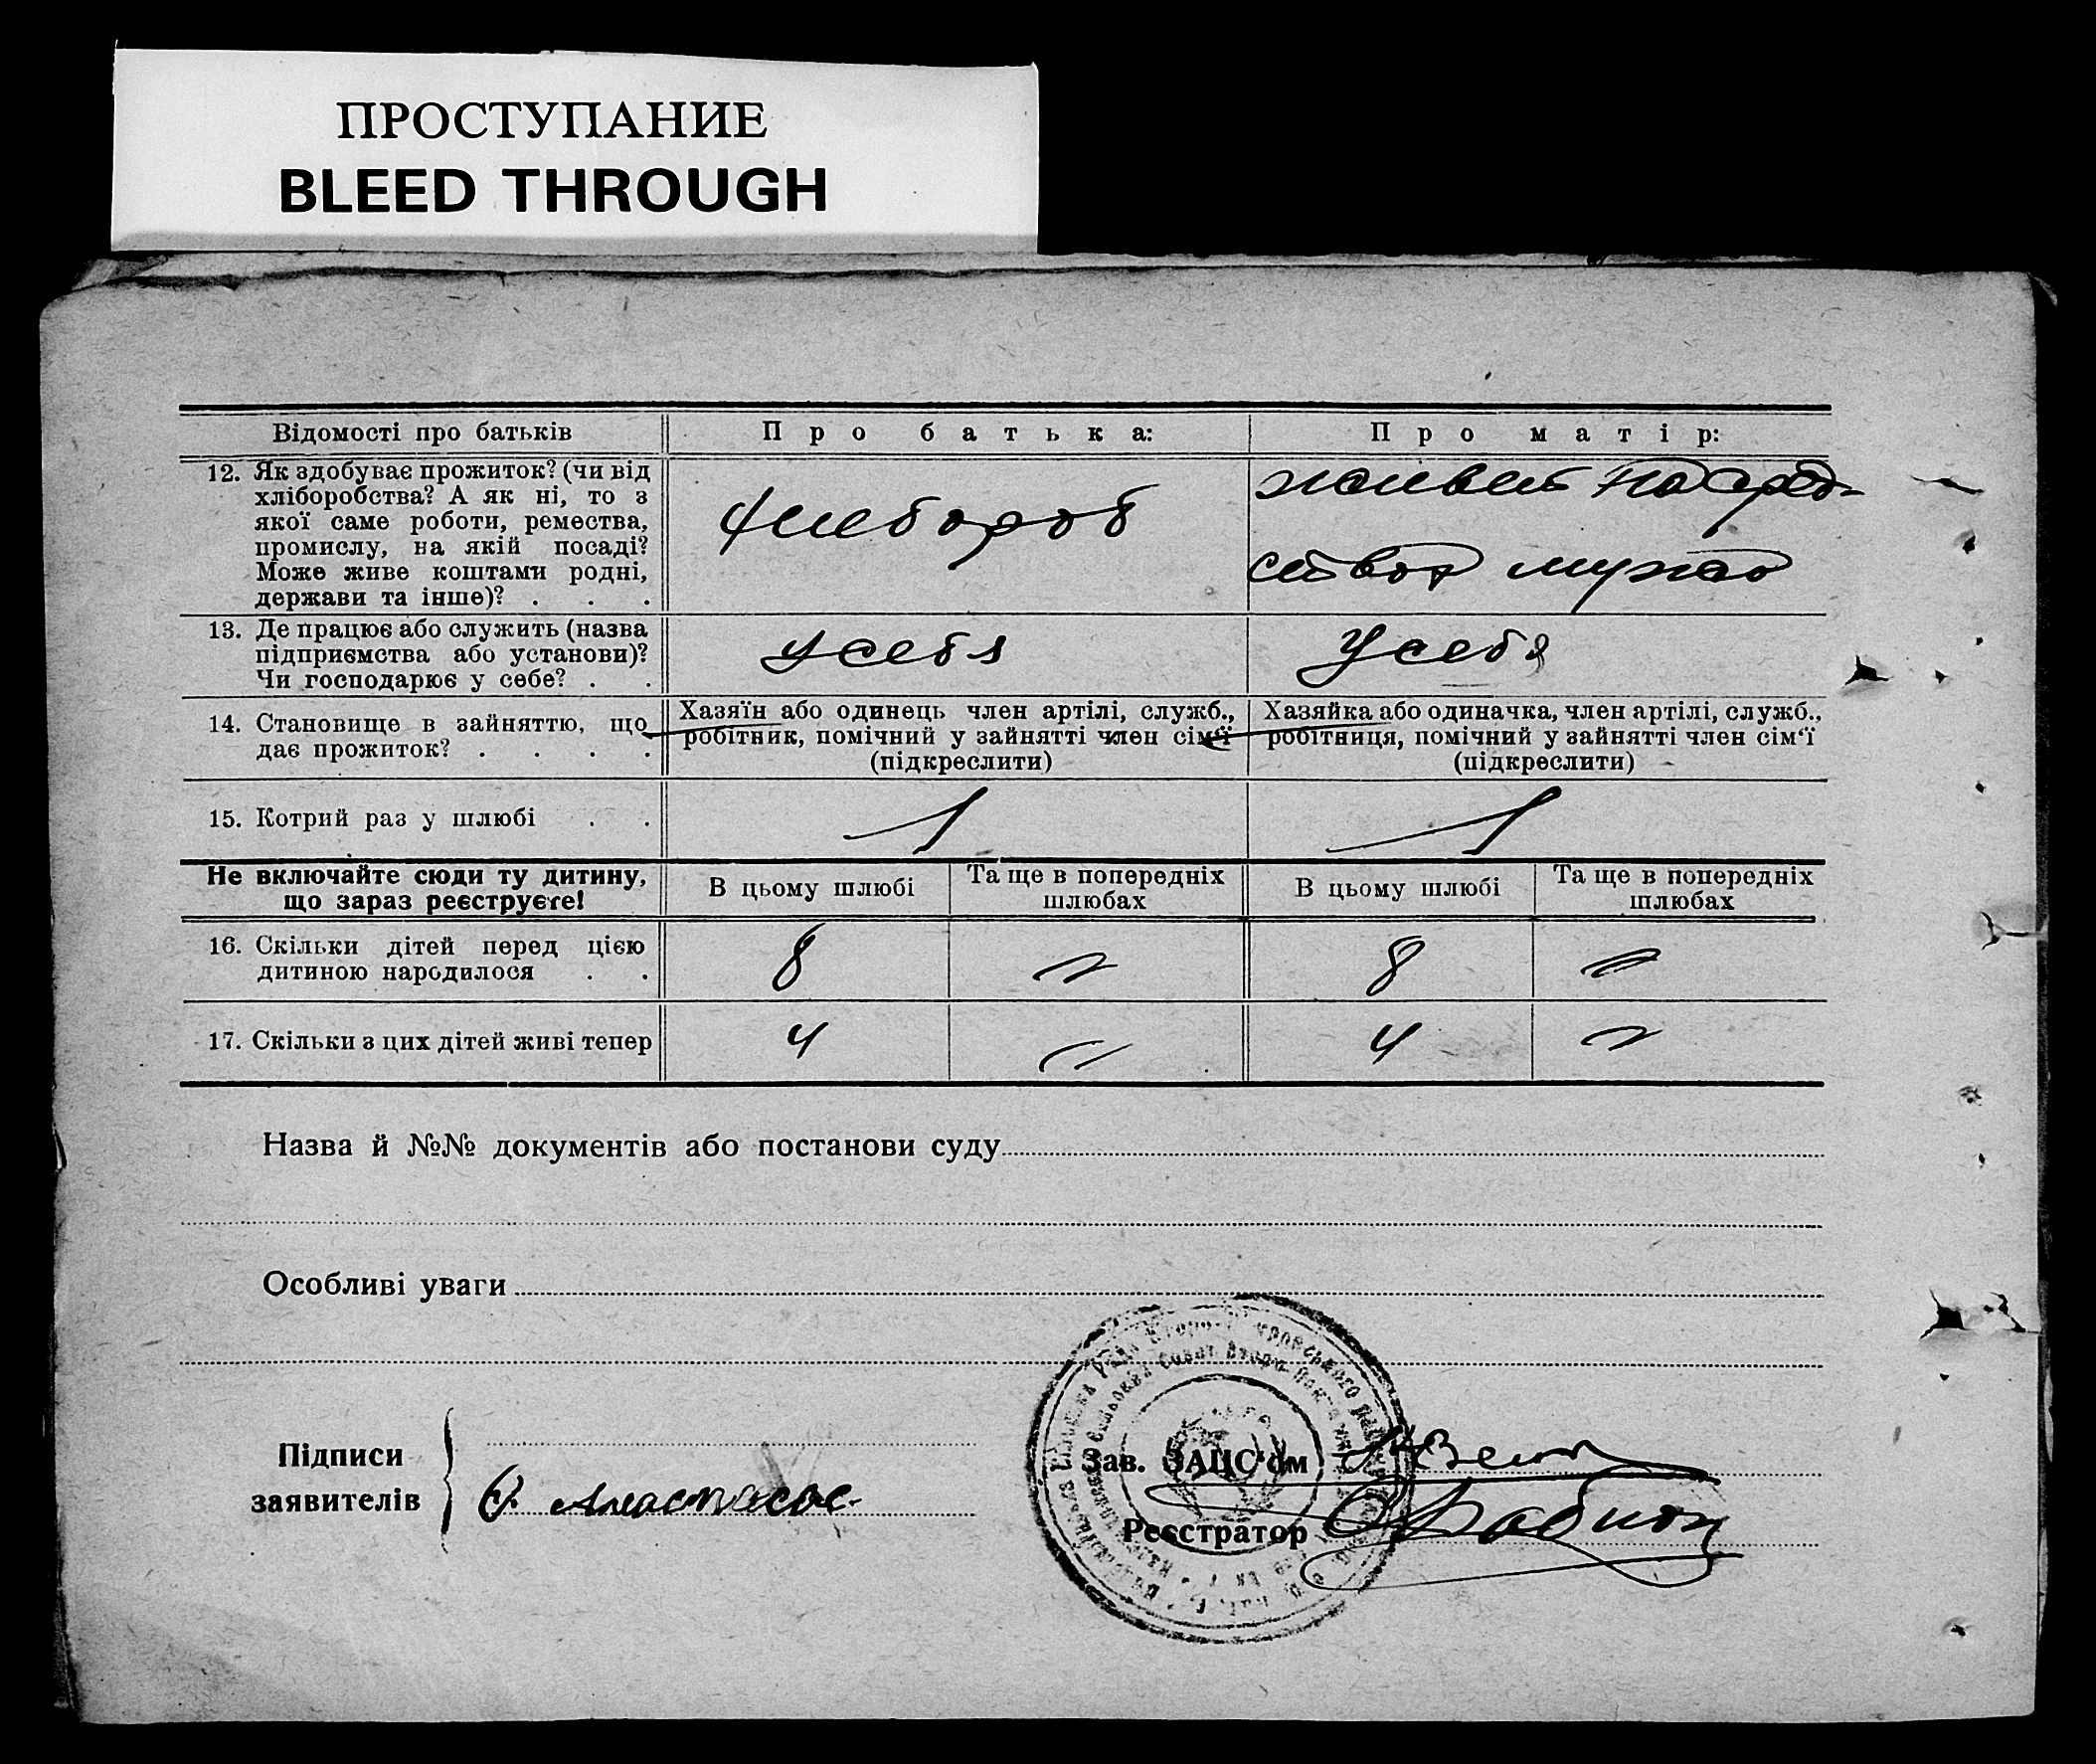 ПРОСТУПАНИЕ
BLEED THROUGH
Відомості про батьків
Про батька:
Про матір:
12. Як здобуває прожиток? (чи від
хліборобства? А як ні, то з
якої саме роботи, ремества,
промислу, на якій посаді?
Може живе коштами родні,
держави та інше)? . . .
хлебороб
живет на сред-
ства мужа
13. Де працює або служить (назва
підприємства або установи)?
Чи господарює у себе? . .
у себя
У себя
14. Становище в зайняттю, що
дає прожиток? . . . .
Хазяїн або одинець член артілі, служб.,
робітник, помічний у зайнятті член сім‘ї
(підкреслити)
Хазяйка або одиначка, член артілі, служб.,
робітниця, помічний у зайнятті член сім‘ї
(підкреслити)
15. Котрий раз у шлюбі . .
1
1
Не включайте сюди ту дитину,
що зараз реєструєте!
В цьому шлюбі
Та ще в попередніх
шлюбах
В цьому шлюбі
Та ще в попередніх
шлюбах
16. Скільки дітей перед цією
дитиною народилося . .
8
8
17. Скільки з цих дітей живі тепер
4
4
Назва й №№ документів або постанови суду
Особливі уваги
Підписи
заявителів
Зав. ЗАЦС‘ом
Реєстратор